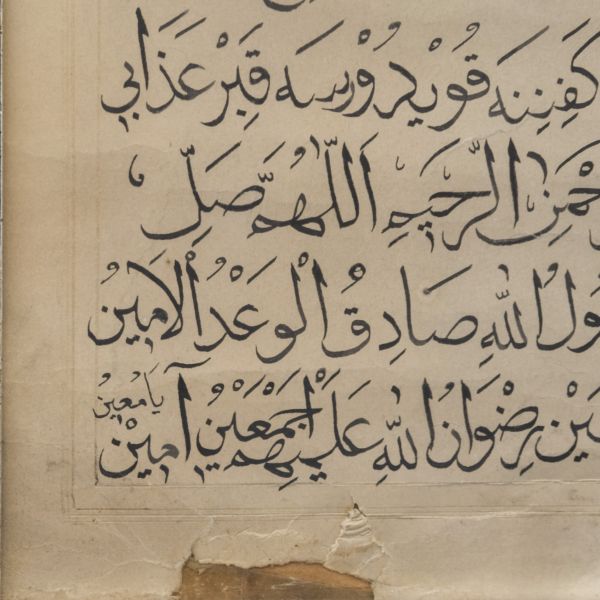 كَفَنِنَه قُويُدْرُوْرسَه قَبِرْ عَذَابِى
الرَّحِيمِ اَللّٰهُمَّ صَلِّ
اللّٰهِ صَادِقُ الْوَعْدُ اَلْاَمِينُ
رِضْوَانُ اللّٰهِ عَلَيْهِمْ اَجْمَعِيْنُ آمِيْنْ
يَا مُعِينُ